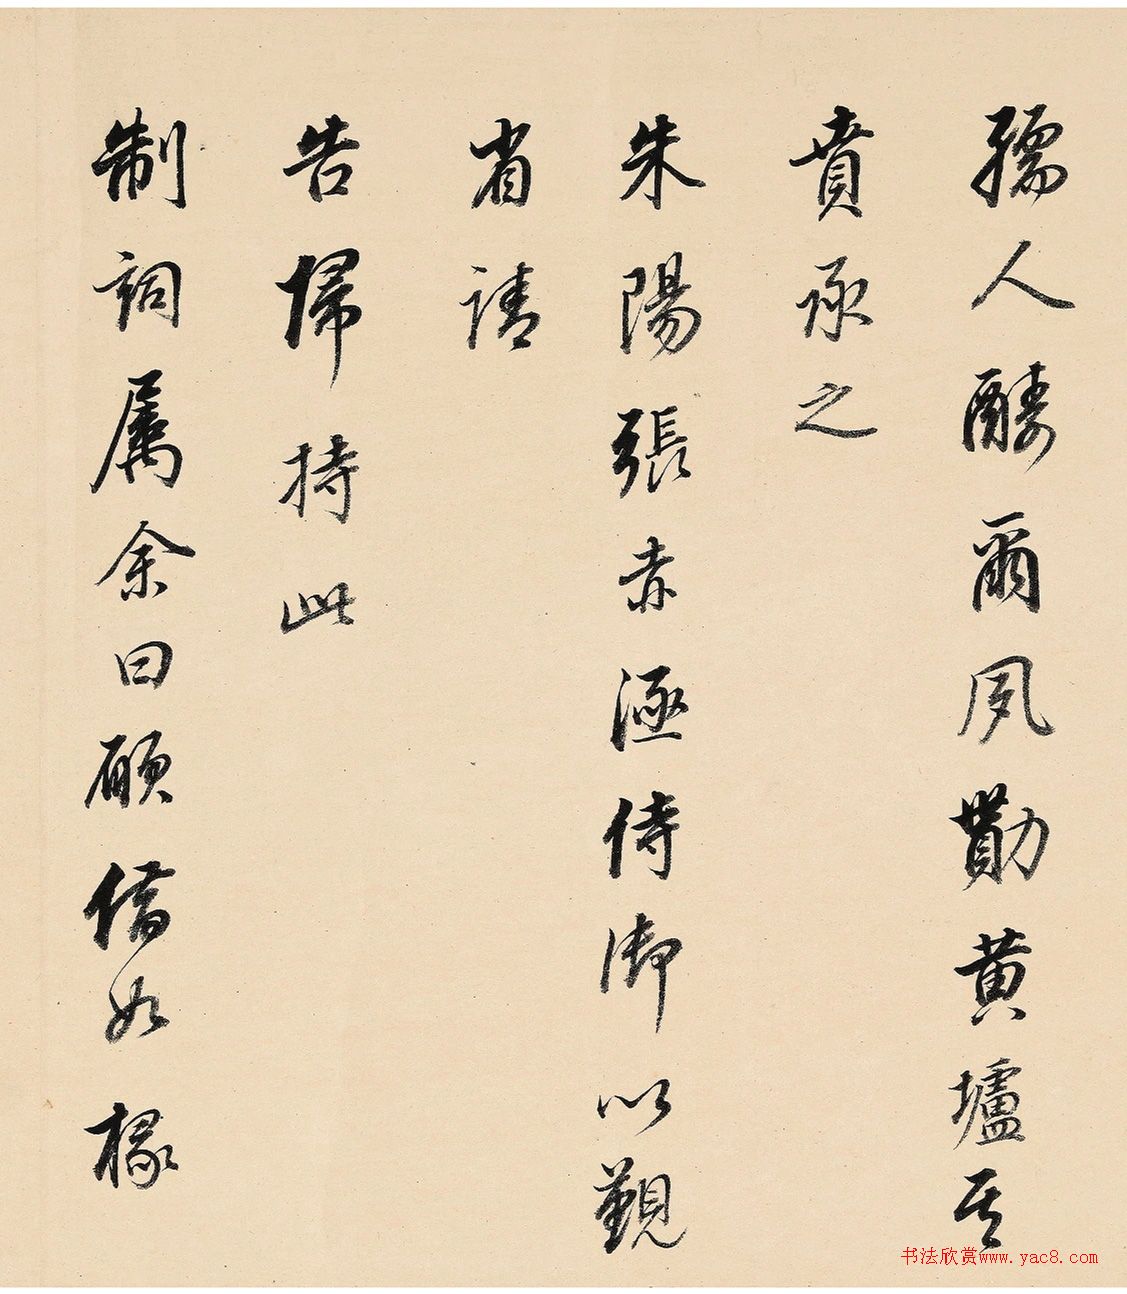 孺人酬爾夙勩黄壚其
賁承之
朱陽張赤涵侍御以觀
省請
告歸持此
制詞屬余曰願借如椽
书法欣赏www.yac8.com